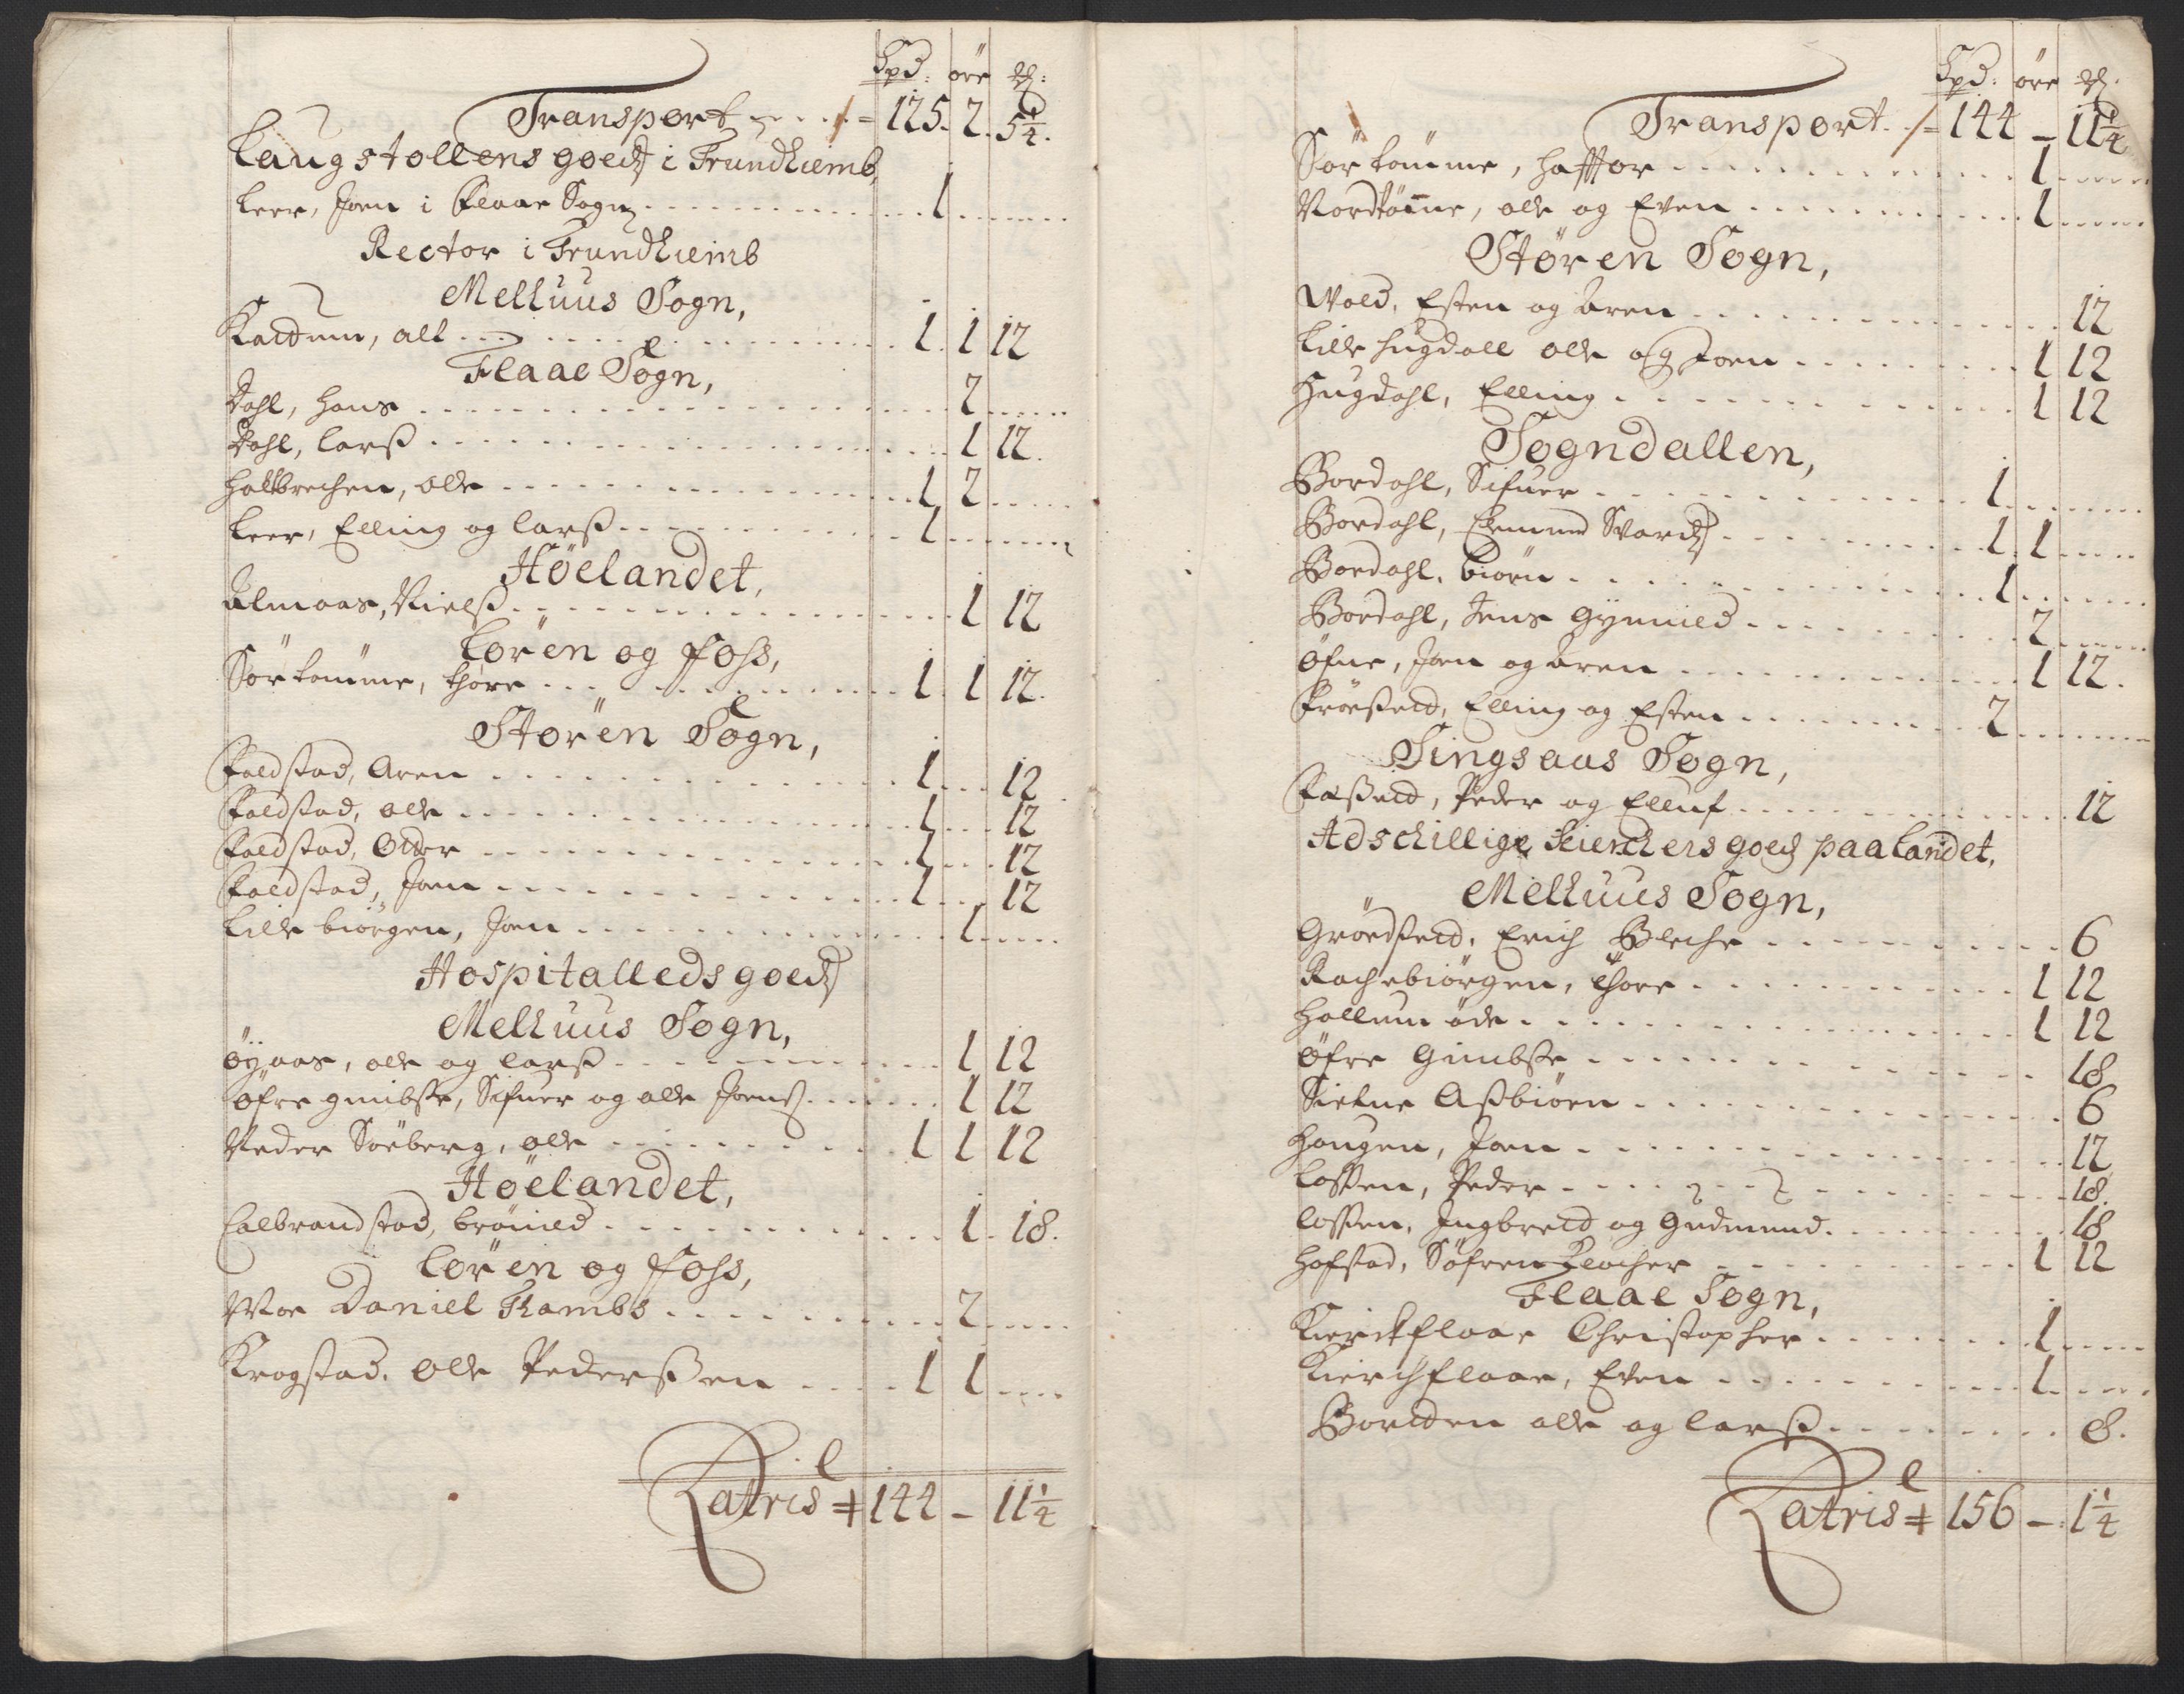 Spd: öre ₰:
Transport - - - - = 125. 2. 5 1/4.
Laugstollens goeds i Trundhiemb,
Leer, Joen i Flaae Sogn - - - 1 - - -
Rector i Trundhiemb
Melhuus Sogn,
Kaldum, all - - - 1. 1 12
Flaae Sogn,
Dahl, Hans - - - 2 - - -
Dahl, Larss - - - 1 12.
Halbrechen, Olle - - - 1 2 - - -
Leer, Elling og Larss - - - 1 - - -
Höelandet,
Almaas, Nielss - - - 1 12
Lören og Foss,
Sör tomme, Thore - - - 1 1 12.
Stören Sogn,
Foldstad, Aren - - - 1 - - 12
Foldstad, Olle - - - 1 - - 12
Foldstad, Older - - - 1 - - 12
Foldstad, Joen - - - 1 - - 12
Lille biörgen, Joen - - - 1 - - -
Hospitalleds goeds
Melhuus Sogn,
Öÿaas, Olle og Larss - - - 1 12
Öfre gimbsse, Sifuer og Olle Joens - - - 1 12
Neder Söeberg, Olle - - - 1 1 12
Höelandet,
Calbrandstad, Brönild - - - 1. 18.
Lören og Foss,
Moe Daniell Krambs - - - 2 - - -
Krogstad. Olle Pederssen - - - 1 1 - - -
Latris ≠ 144 - 11 1/4
Spd: öre ₰:
Transport - - = 144 - 11 1/4
Sör tömme, Haffor - - - 1 - - -
Nordtömme, Olle og Even - - - 1 - - -
Stören Sogn,
Wold, Esten og Aren - - - 12
Lille Hugdall Olle og Joen - - - 1 12
Hugdahl, Elling - - - 1 12
Sogndallen,
Bordahl, Sifuer - - - 1 - - -
Bordahl, Emund Svards - - - 1 1 - - -
Bordahl, Biörn - - - 1 - - -
Bordahl, Jens Gynnild - - - 2 - - -
Öfne, Joen og Aren - - - 1 12.
Fröesseid, Elling og Esten - - - 2 - - -
Singsaas Sogn,
Fosseid, Peder og Elluf - - - 12
Adschillige Kierchers goeds paa Landet.
Melhuus Sogn,
Gröedsseid, Erich Bleche - - - 6
Rachebiörgen, Thore - - - 1 12
Hallum öde - - - 1 12
Öfre Gimbsse - - - 18
Sielne Assbiörn - - - 6
Hougen, Joen - - - 12
Lossen, Peder - - - 18.
Lossen, Ingbreld og Gudmund - - - 18
Hofstad, Söfren - - - 1 12
Flaae Sogn,
Kierchflaae Christopher - - - 1 - - -
Kierchflaae, Even - - - 1 - - -
Bortten Olle og Larss - - - 8.
Latris ≠ 156 - 1 1/4